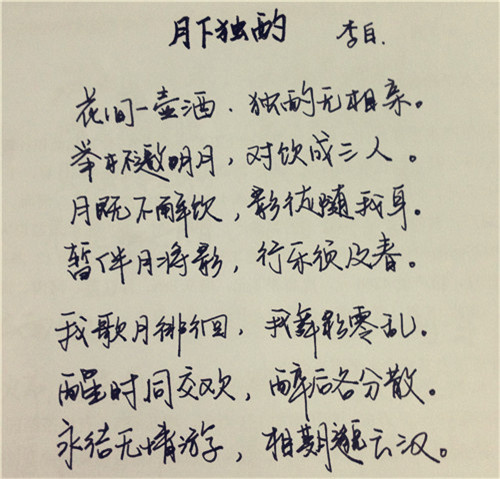 月下独酌 李白.
花间一壶酒.独酌无相亲。
举杯邀明月,对饮成三人。
月既不解饮,影徒随我身。
暂伴月将影,行乐须及春。
我歌月徘徊,我舞影零乱。
醒时同交欢,醉后各分散。
永结无情游,相期邈云汉。